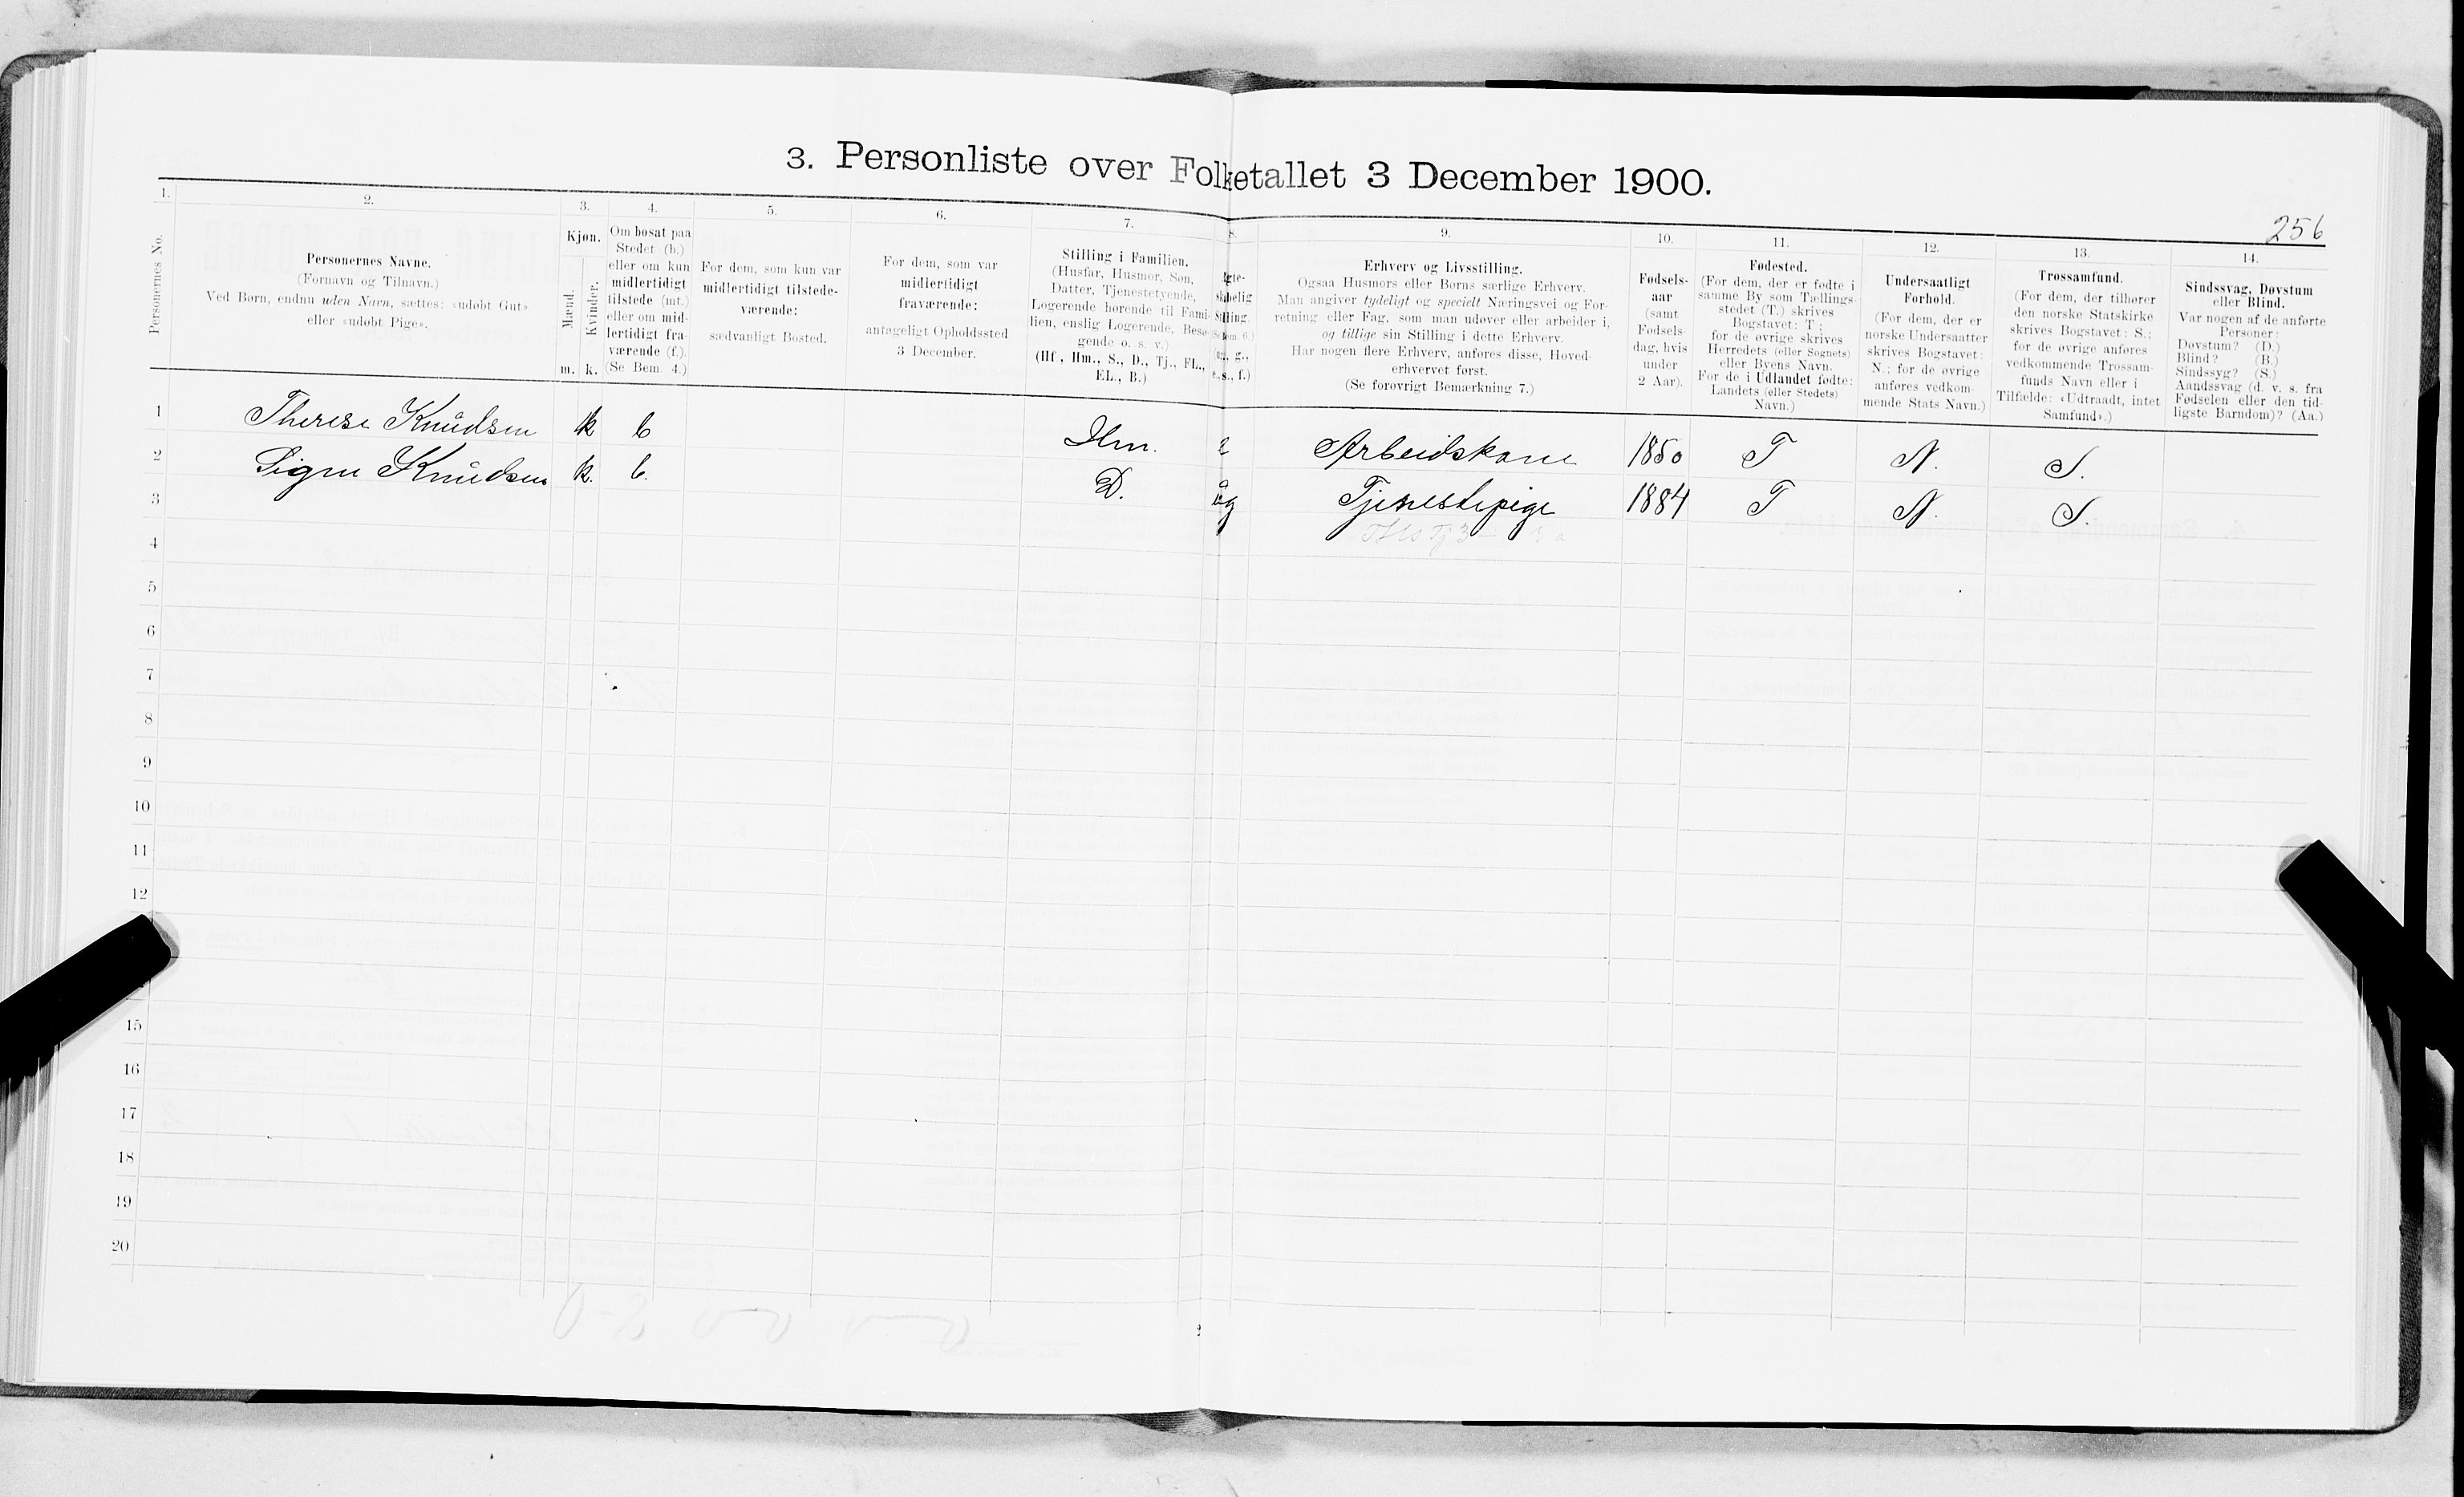 3. Personliste over Folketallet 3 December 1900.
256
1. 2. 3. 4. 5. 6. 7. 8. 9. 10. 11. 12. 13. 14.
Personernes No.
Personernes Navne.
(Fornavn og Tilnavn.)
Ved Børn, endnu uden Navn, sættes: «udøbt Gut»
eller «udøbt Pige».
Kjøn.
Mænd.
Kvinder.
m. k.
Om bosat paa
Stedet (b.)
eller om kun
midlertidigt
tilstede (mt.)
eller om mid-
lertidigt fra-
værende (f.).
(Se Bem. 4.)
For dem, som kun var
midlertidigt tilstede-
værende:
sædvanligt Bosted.
For dem, som var
midlertidigt
fraværende:
antageligt Opholdssted
3 December.
Stilling i Familien.
(Husfar, Husmor, Søn,
Datter, Tjenestetyende,
Logerende hørende til Fami-
lien, enslig Logerende, Besø-
gende o. s. v.)
(Hf., Hm., S., D., Tj., FL.,
EL., B.)
Erhverv og Livsstilling.
Ogsaa Husmors eller Børns særlige Erhverv.
Man angiver tydeligt og specielt Næringsvei og For-
retning eller Fag, som man udøver eller arbeider i,
og tillige sin Stilling i dette Erhverv.
Har nogen flere Erhverv, anføres disse, Hoved-
erhvervet først.
(Se forøvrigt Bemærkning 7.)
Fødsels-
aar
(samt
Fødsels-
dag, hvis
under
2 Aar).
Fødested.
(For dem, der er fødte i
samme By som Tællings-
stedet (T.) skrives
Bogstavet: T.;
for de øvrige skrives
Herredets (eller Sognets)
eller Byens Navn.
For de i Udlandet fødte:
Landets (eller Stedets)
Navn.)
Undersaatligt
Forhold.
(For dem, der er
norske Undersaatter
skrives Bogstavet:
N.; for de øvrige
anføres vedkom-
mende Stats Navn.)
Trossamfund.
(For dem, der tilhører
den norske Statskirke
skrives Bogstavet: S.;
for de øvrige anføres
vedkommende Trossam-
funds Navn eller i
Tilfælde: «Udtraadt, intet
Samfund».)
Sindssvag, Døvstum
eller Blind.
Var nogen af de anførte
Personer:
Døvstum? (D.)
Blind? (B.)
Sindssyg? (S.)
Aandssvag (d. v. s. fra
Fødselen eller den tid-
ligste Barndom)? (Aa.)
1 Therese Knudsen k b Hm. Arbeidskone 1850 T N. S.
2 Signe Knudsen k. b. D. ug Tjenestepige 1884 T N. S.
3
4
5
6
7
8
9
10
11
12
15
16
17
18
19
20